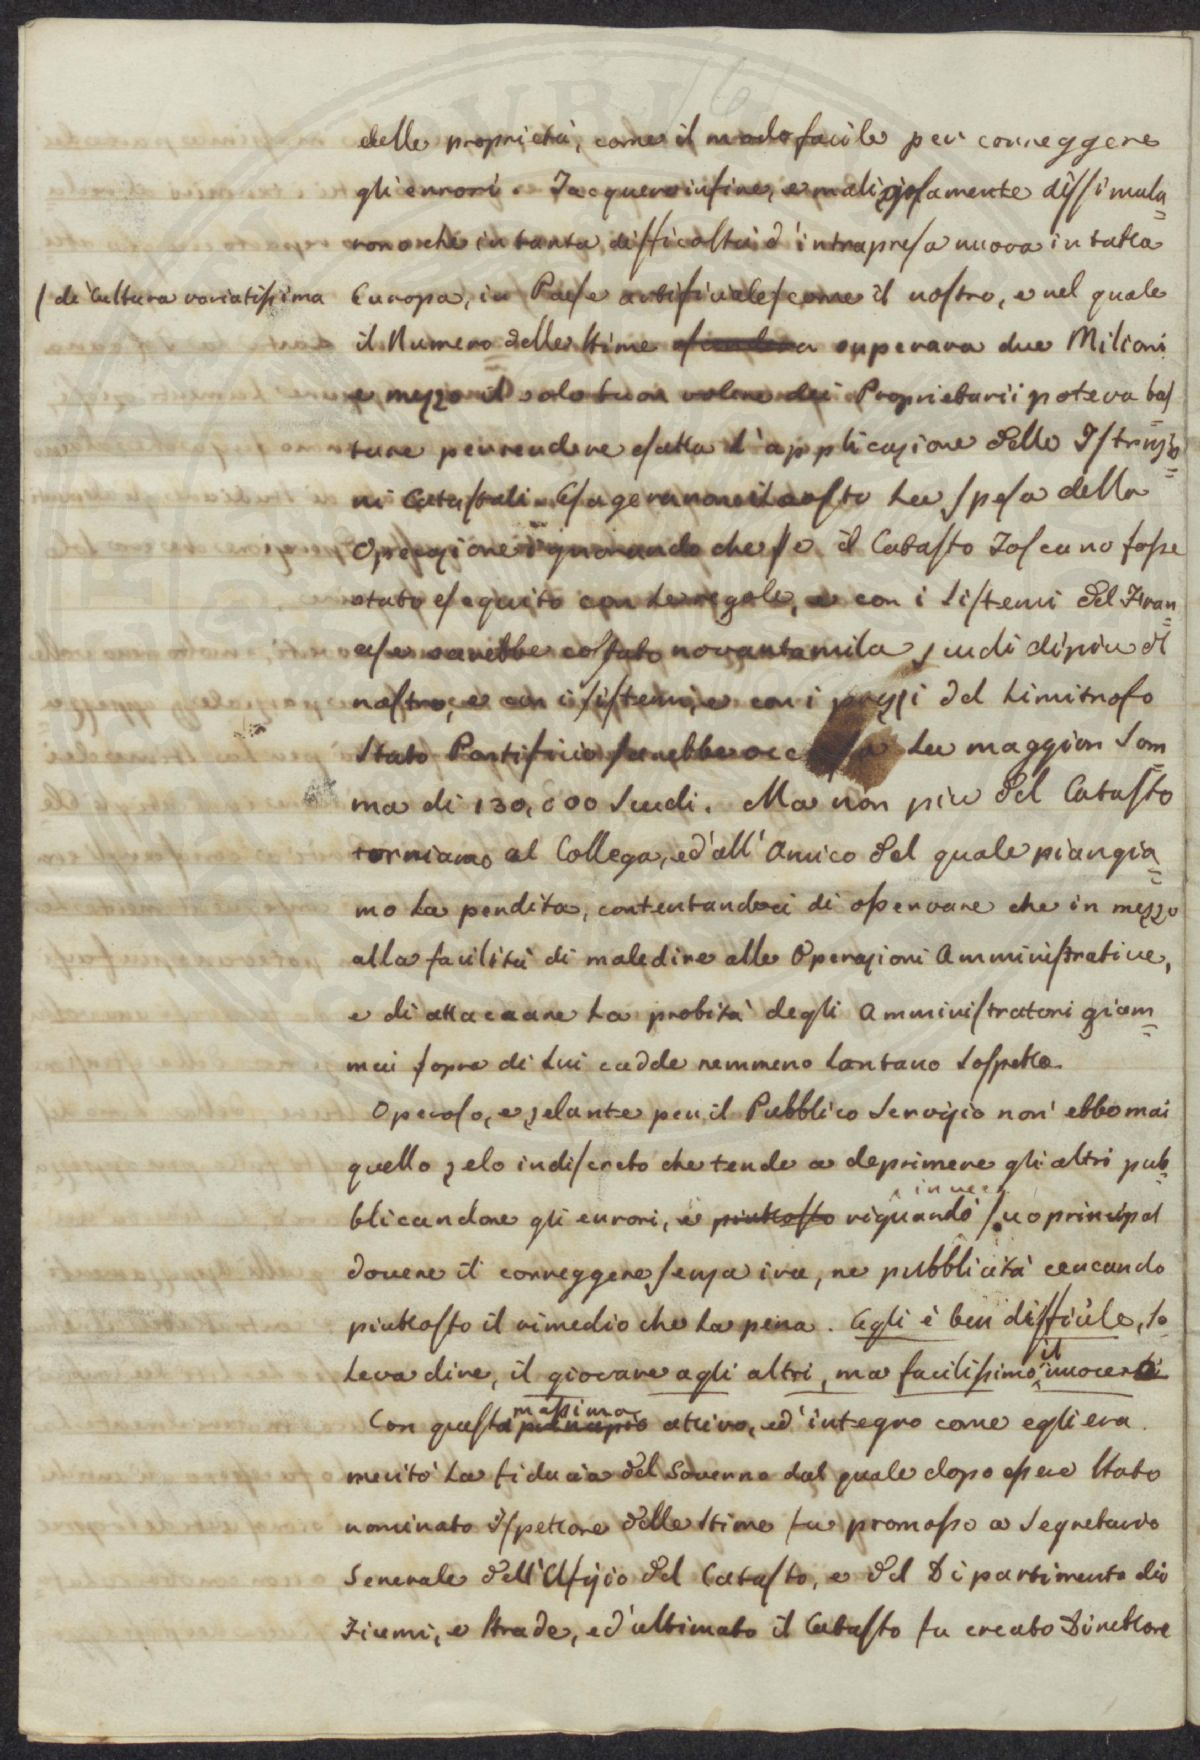 delle proprietà, come il modo facile per correggere
gli errori. Tacquero infine, e maliziosamente dissimula=
rono che in tanta difficoltà d'intrapresa nuova in tutta
/ di cultura variatissima
Europa, in Paese artificiale/come il nostro, e nel quale
il Numero delle Stime superava due Milioni
e mezzo il solo buon volere dei Proprietarii poteva bas=
tare per rendere esatta l'applicazione delle Istruzio=
ni Catastali. Esagerarono il costo La spesa della
Operazione ignorando che se il Catasto Toscano fosse
stato eseguito con le regole, e con i Sistemi del Fran=
cese sarebbe costato novantamila scudi di più del
nostro, e con i sistemi, e con i prezzi del Limitrofo
Stato Pontificio sarebbe occorsa La maggior Som=
ma di 130,000 Scudi. Ma non più del Catasto
torniamo al Collega, ed all' Amico del quale piangia=
mo La perdita, contentandoci di osservare che in mezzo
alla facilità di maledire alle Operazioni Amministrative,
e di attaccare La probità degli Amministratori giam=
mai sopra di Lui cadde nemmeno Lontano Sospetto.
Operoso, e zelante per il Pubblico Servizio non ebbe mai
quello zelo indiscreto che tende a deprimere gli altri pub=
invece
blicandone gli errori, e piuttosto riguardò suo principal
dovere il correggere senza ira, ne pubblicità cercando
piuttosto il rimedio che La pena. Egli è ben difficile, So
il
Leva dire, il giovare agli altri, ma facilissimo nuocerli
massima
Con questa principio attivo, ed integro come egli era
meritò La fiducia del Governo dal quale dopo essere Stato
nominato Ispettore delle Stime fu promosso a Segretario
Generale dell'Ufizio del Catasto, e del Dipartimento di
Fiumi, e Strade, ed ultimato il Catasto fu creato Direttore